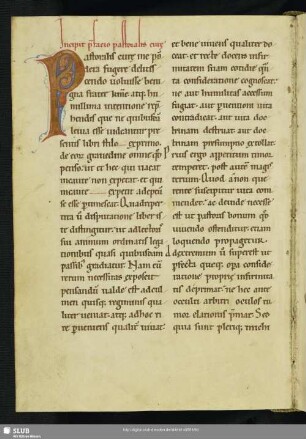 Incipit p̄facio pastoralis curę
Pastoralis curę me pon
dera fugere delites
cendo voluisse beni
gna frater kmē. atq; hu
millima intentione rep̄
hendis. quę ne quibusdā
leuia esse uideantur. pre
senti libri stilo exprimo.
de eoꝝ grauedine omne qđ
penso. ut et hęc qui uacat
incaute non expetat. et qui
incaute expetit adeptū
se esse ptimescat. Quadriper
tita ū disputatione liber is
te distinguitur. ut ad lectoris
sui animum ordinatis lega
tionibus quasi quibusdam
passib; gradiatur. Nam cū
rerum necessitas exposcit
pensandū ualde est. ad cul
men quisq; regiminis quali
ter ueniat. atq; ad hoc ri
te pueniens qualit̄ uiuat.
et bene uiuens qualiter do
ceat. et recte docens infir
mitatem suam cotidie quā
ta consideratione cognoscat.
ne aut humilitas accessum
fugiat. aut puentioni uita
contradicat. aut uitā doc
trina destituat. aut doc
trinam presumptio extollat.
Prius ergo appetitum timor
temperet. post autē magis
terium. Quod a non que
rente suscipitur uita com
mendet. ac deinde necesse
est ut pastoris bonum qđ
uiuendo ostenditur. etiam
loquendo propagetur.
Ad extremum ū superest ut
pfecta quęq; opa conside
ratio proprię infirmita
tis deprimat. ne hęc ante
occulti arbitri oculos tu
mor elationis p̄mat. Sed
quia sunt pleriq; michi
SLUB
Wir führen Wissen.